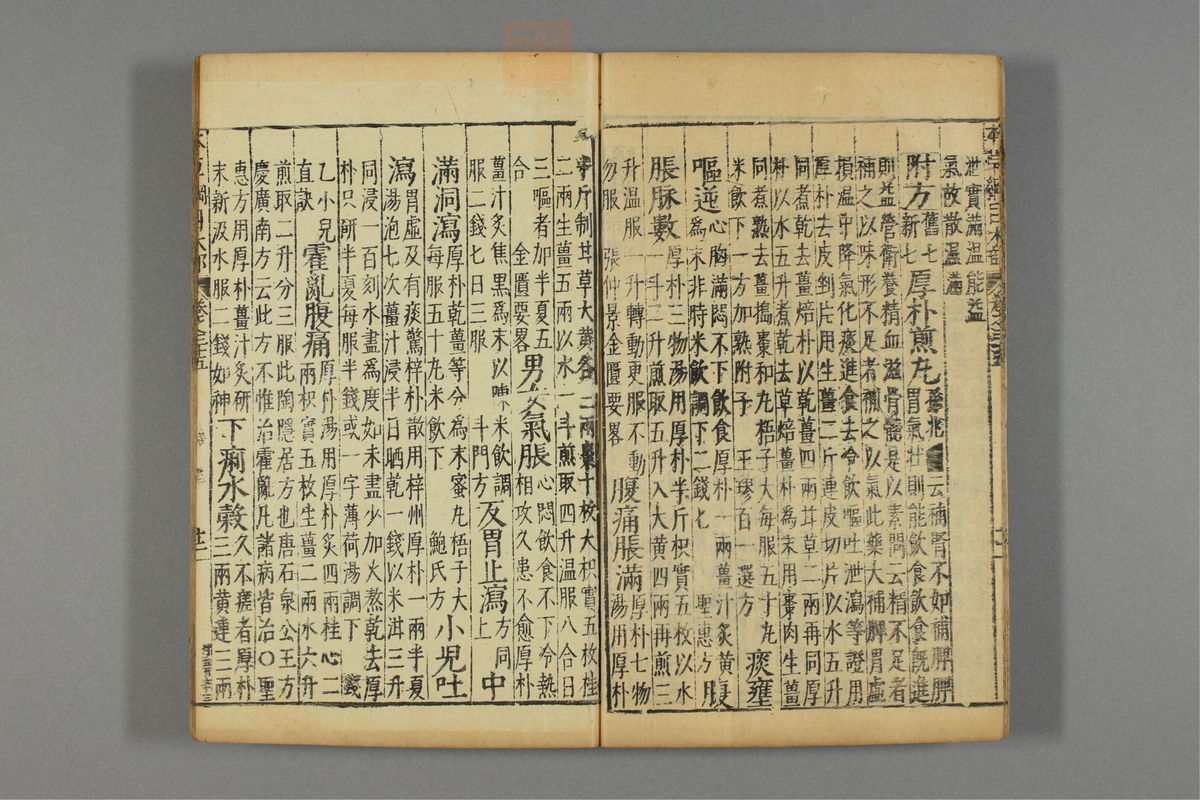 泄實滿溫能益
氣故散濕滿
附方舊七新七厚朴煎丸孫兆云補腎不如補脾脾
胃氣壯則能飲食飲食既進
則益營衛養精血滋骨髓是以素問云精不足者
補之以味形不足者補之以氣此藥大補脾胃虛
損溫中降氣化痰進食去冷飲嘔吐泄瀉等證用
厚朴去皮剉片用生薑二斤連皮切片以水五升
同煮乾去薑焙朴以乾薑四兩甘草二兩再同厚
朴以水五升煮乾去草焙薑朴為末用棗肉生薑
同煮熟去薑搗棗和丸梧子大每服五十丸
米飲下一方加熟附子 王璆百一選方
痰壅
嘔逆心胸滿悶不下飲食厚朴一兩薑汁炙黃
為末非時米飲調下二錢七 聖惠方
腹
脹脉數厚朴三物湯用厚朴半斤枳實五枚以水
一斗二升煎取五升入大黃四兩再煎三
升溫服一升轉動更服不動
勿服 張仲景金匱要畧
腹痛脹滿厚朴七物
湯用厚朴
半斤制甘草大黃各三兩棗十枚大枳實五枚桂
二兩生薑五兩以水一斗煎取四升溫服八合日
三嘔者加半夏五
合 金匱要畧
男女氣脹心悶飲食不下冷熱
相攻久患不愈厚朴
薑汁炙焦黑為末以陳米飲調
服二錢七日三服 斗門方
反胃止瀉方同
上
中
滿洞瀉厚朴乾薑等分為末蜜丸梧子大
每服五十丸米飲下 鮑氏方
小兒吐
瀉胃虛及有痰驚梓朴散用梓州厚朴一兩半夏
湯泡七次薑汁浸半日晒乾一錢以米泔三升
同浸一百刻水盡為度如未盡少加火熬乾去厚
朴只研半夏每服半錢或一字薄荷湯調下 錢
乙小兒
直訣
霍亂腹痛厚朴湯用厚朴炙四兩桂心二
兩枳實五枚生薑二兩水六升
煎取二升分三服此陶隱居方也唐石泉公王方
慶廣南方云此方不惟治霍亂凡諸病皆治○聖
惠方用厚朴薑汁炙研
末新汲水服二錢如神
下痢水穀久不瘥者厚朴
三兩黃連三兩